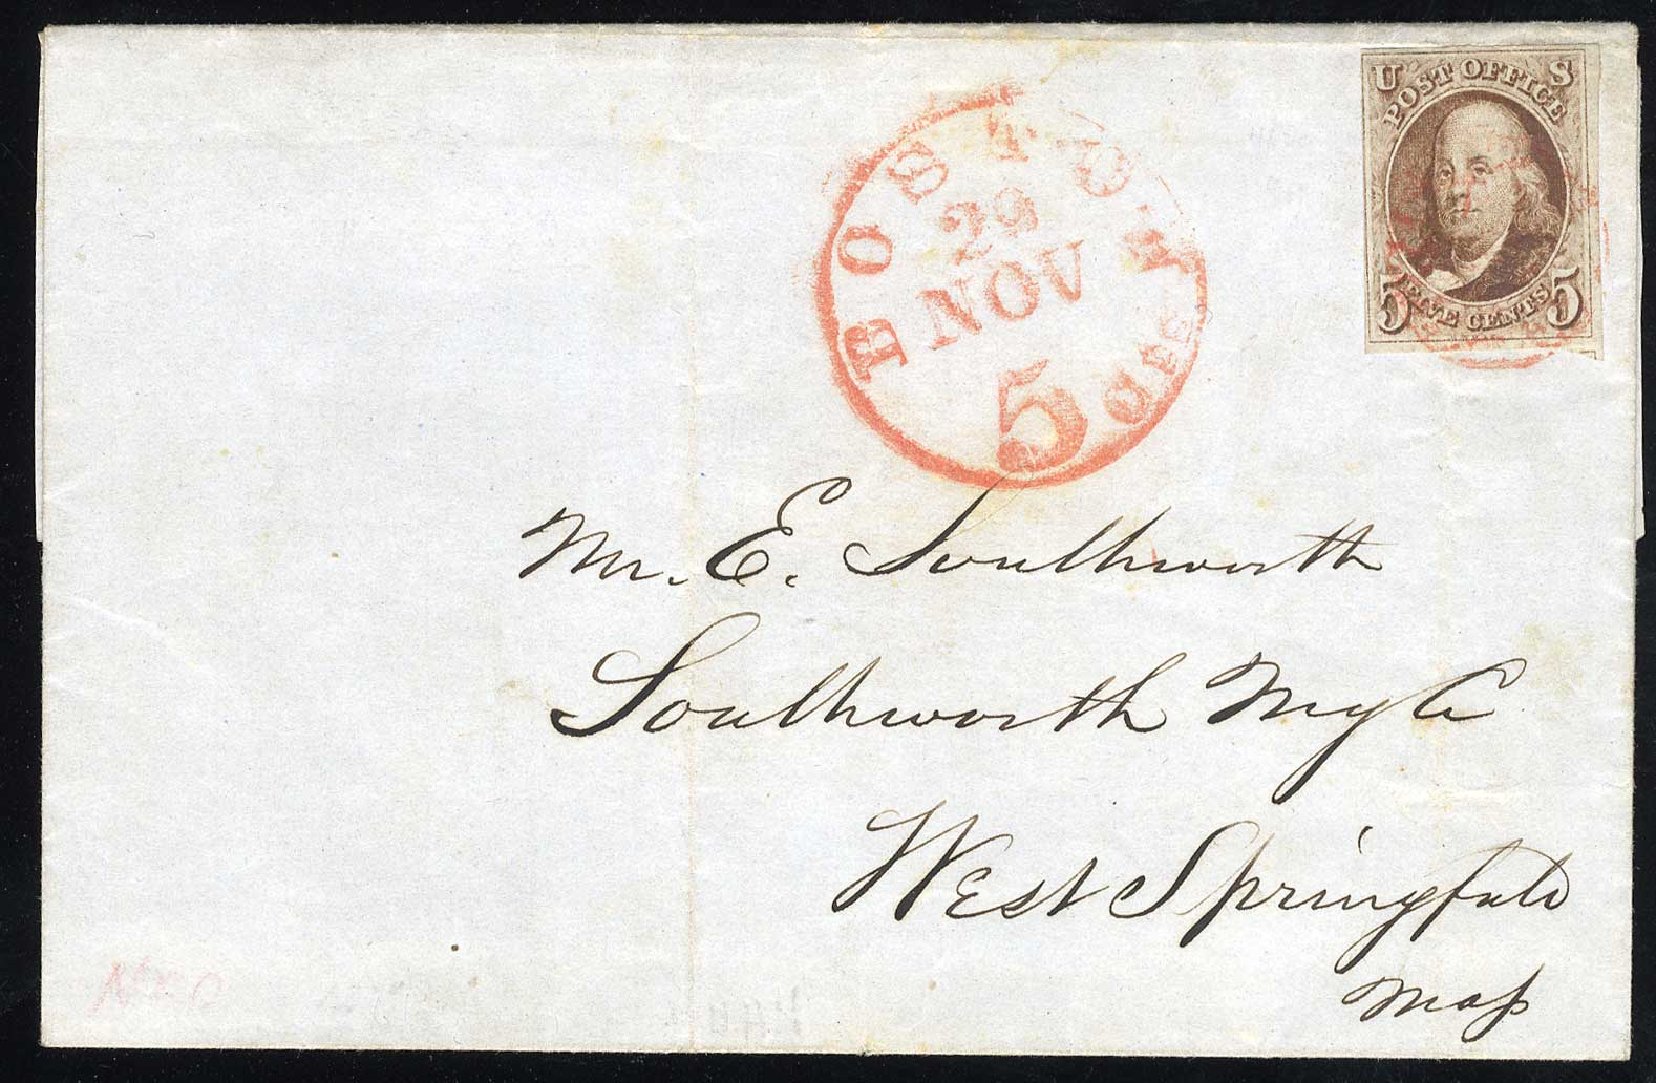 U S
POST OFFICE
5 FIVE CENTS 5
BOSTON
29
NOV
5
cts
Mr. E. Southworth
Southworth Mg Co
West Springfield
Mass